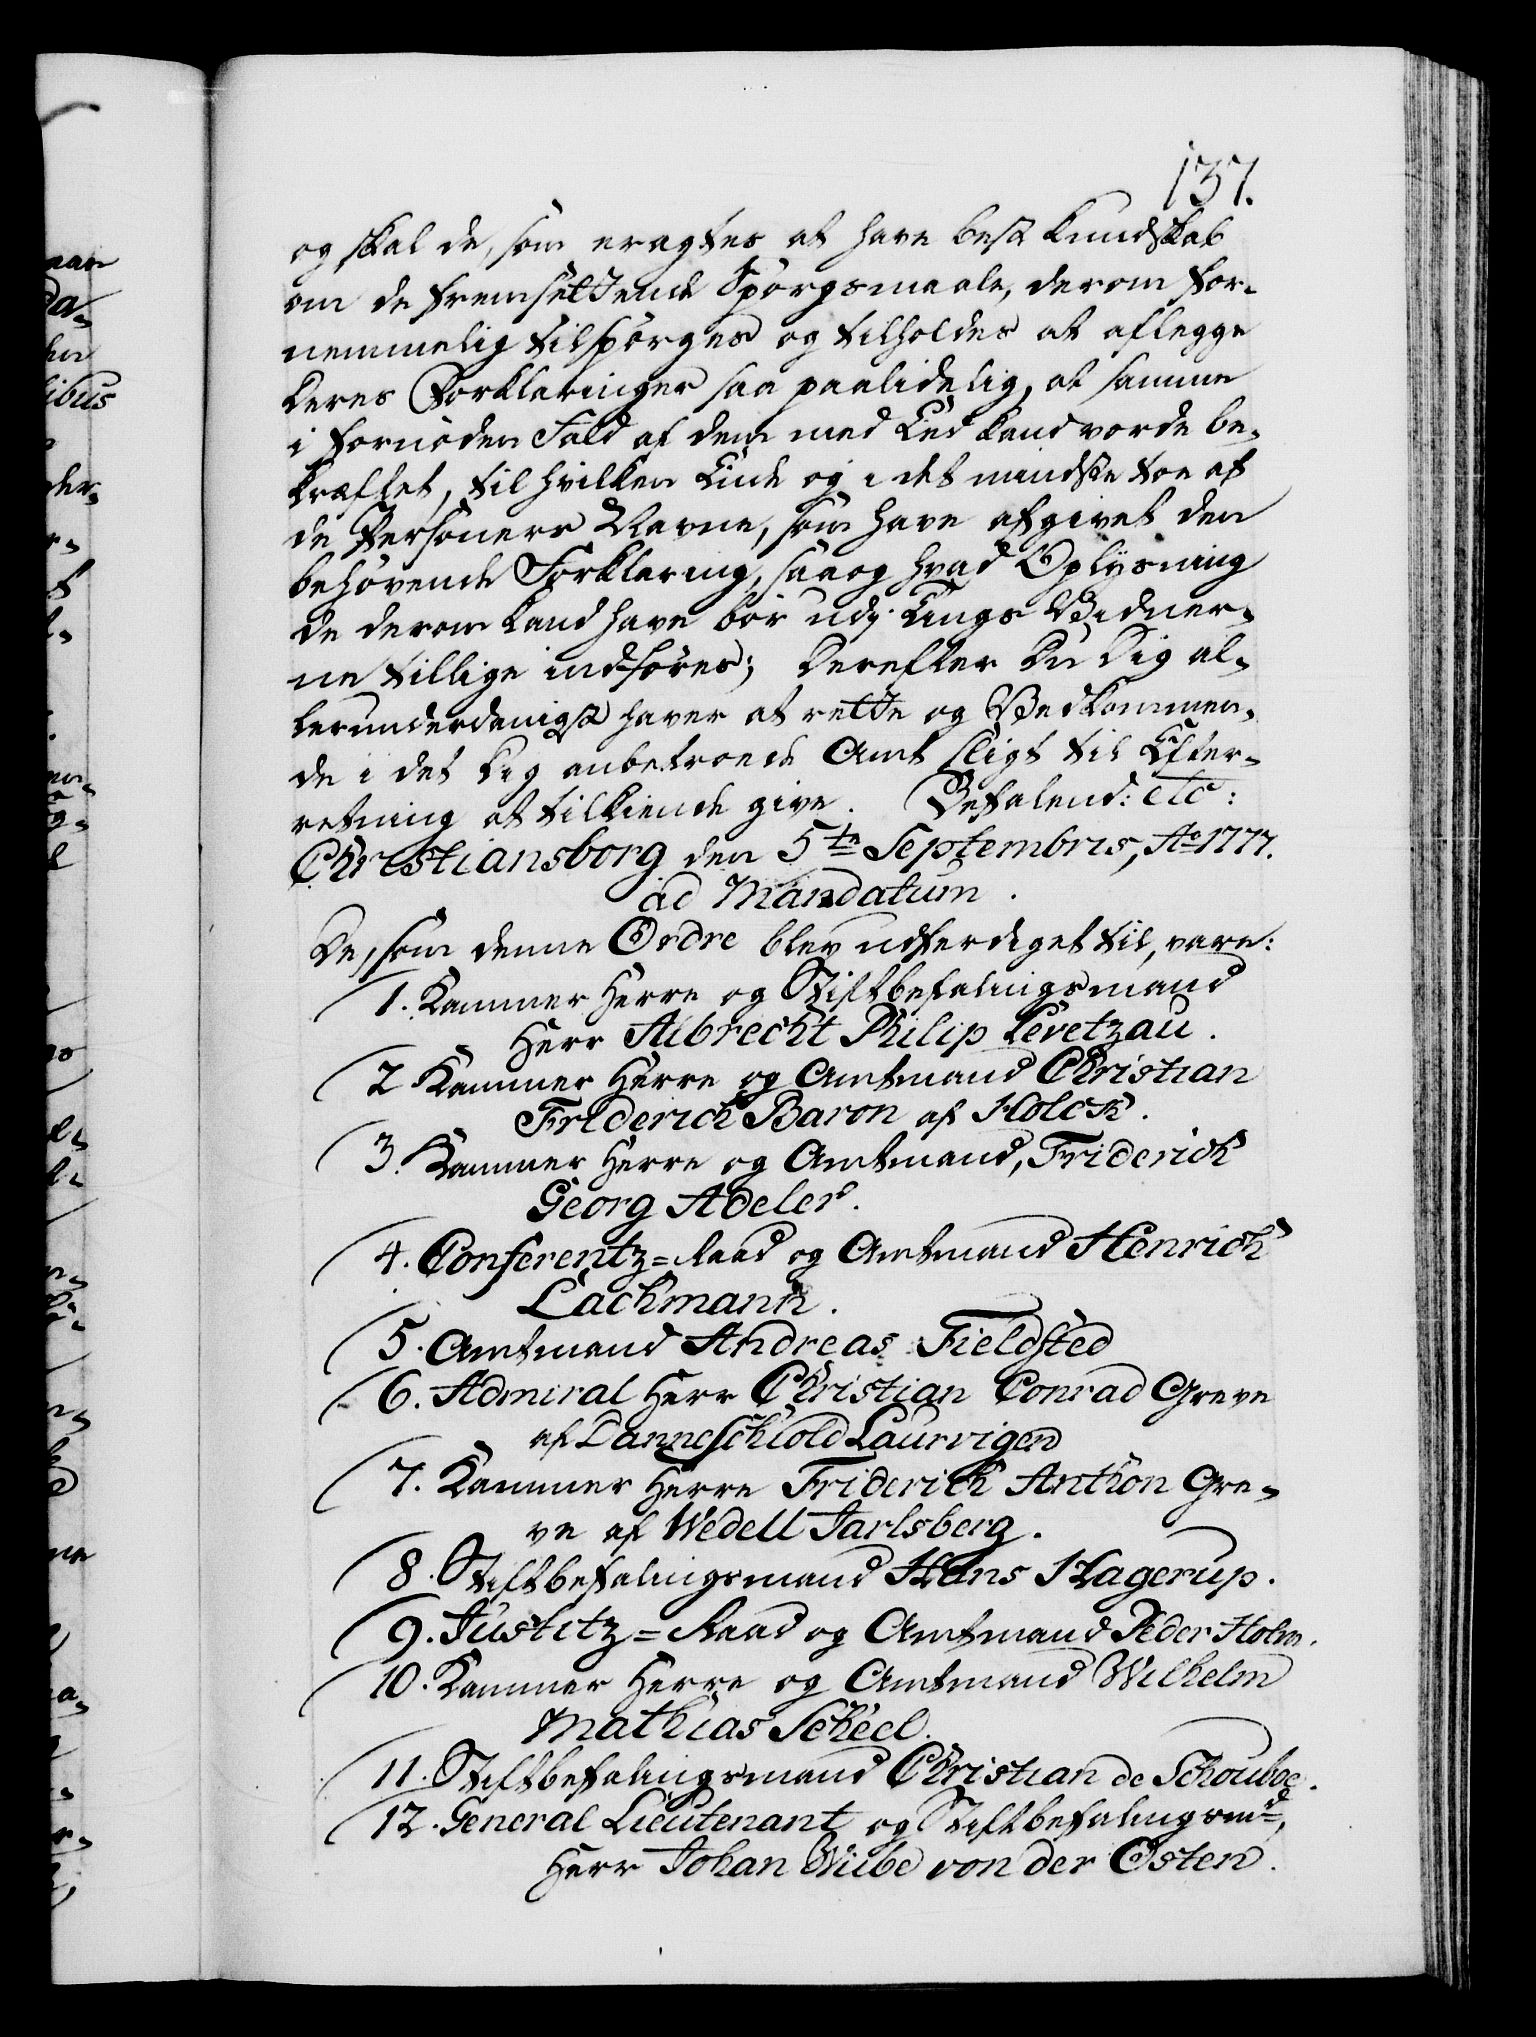 137.
og skal de, som eragtes at have best Kundskab
om de fremsettende Spörgsmaale, derom for-
nemmelig tilspörges og tilholdes at aflegge
deres Forklaringer saa paalidelig, at samme
i fornöden Fald af dem med Eed kand vorde be-
kræftet, til hvilken Ende og i det mindste toe af
de Persohners Navne, som have afgivet den
behövende Forklaring, saa og hvad Oplysning
de derom kand have bör udj Tings Vidner-
ne tillige indföres; Derefter Du Dig al-
lerunderdanigst haver at rette og Vedkommen-
de i det Dig anbetroede Amt sligt til Efter-
retning at tilkiende give. Befalend: etc:
Christiansborg den 5te Septembris, Ao 1777.
ad Mandatum.
De, som denne Ordre blev udferdiget til, vare:
1. Kammer Herre og Stiftbefalingsmand
Herr Albrecht Philip Levetzau.
2 Kammer Herre og Amtmand Christian
Friderich Baron af Holck.
3. Kammer Herre og Amtmand, Friderich
Georg Adeler.
4. Conferentz=Raad og Amtmand Henrich
Lachmann.
5. Amtmand Andreas Fieldsted
6. Admiral Herr Christian Conrad Greve
af Danneschiold Laurvigen
7. Kammer Herre Friderich Anthon Gre-
ve af Wedell Jarlsberg.
8. Stiftbefalingsmand Hans Hagerup.
9. Justitz=Raad og Amtmand Peder Holm.
10. Kammer Herre og Amtmand Wilhelm
Mathias Scheel.
11. Stiftbefalingsmand Christian de Schouboe.
12. General Lieutenant og Stiftbefalingsmd,
Herr Johan Wibe von der Osten.